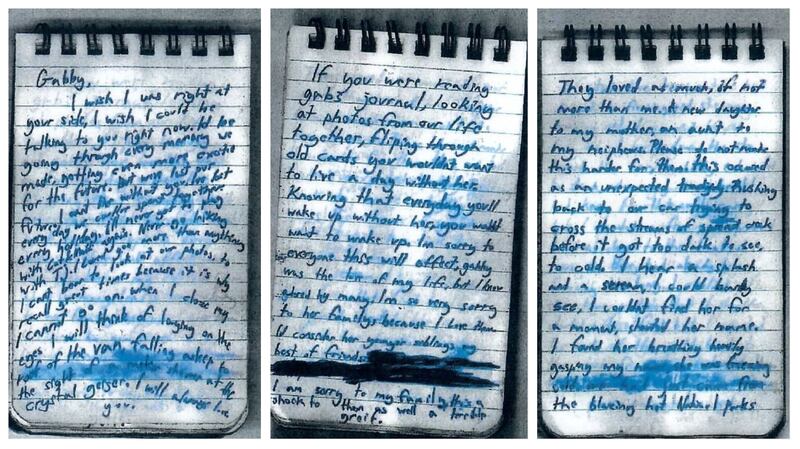 Gabby,
I wish I was right at
your side, I wish I could be
talking to you right now. I'd be
going through every memory we
made, getting even more excited
for the future. But we've lost our
future. I can't be without you. I've lost
every day we could've spent together,
every holiday. I'll never get to play
with again. Never go hiking
with TJ. I loved you more than anything
I can't bear to look at our photos, to
recall great times because it is why
I cannot go on. when I close my
eyes I will think of laughing on the
roof of the van, falling asleep to
the sight of at the
crystal geiser. I will always love
you.
If you were reading
gabs journal, looking
at photos from our life
together, fliping through
old cards you wouldn't want
to live a day without her.
Knowing that everyday you'll
wake up without her, you wouldn't
want to wake up. I'm sorry to
everyone this will affect, gabby
was the love of my life, but I know
adored by many. I'm so very sorry
to her family because I love them
I'd consider her younger siblings my
best of friends
I am sorry to my family, this is a
shock to them as well a terrible
greif.
They loved as much, if not
more than me. A new daughter
to my mother, an aunt to
my neiphews. Please do not make
this harder for them, this occured
as an unexpected tradgedy. Rushing
back to our car trying to
cross the streams of spread creek
before it got too dark to see,
to cold. I hear a splash
and a scream. I could barely
see, I couldn't find her for
a moment, shouted her name.
I found her breathing heavily
gasping my name, she was freezing
cold from
the blazing hot National Parks